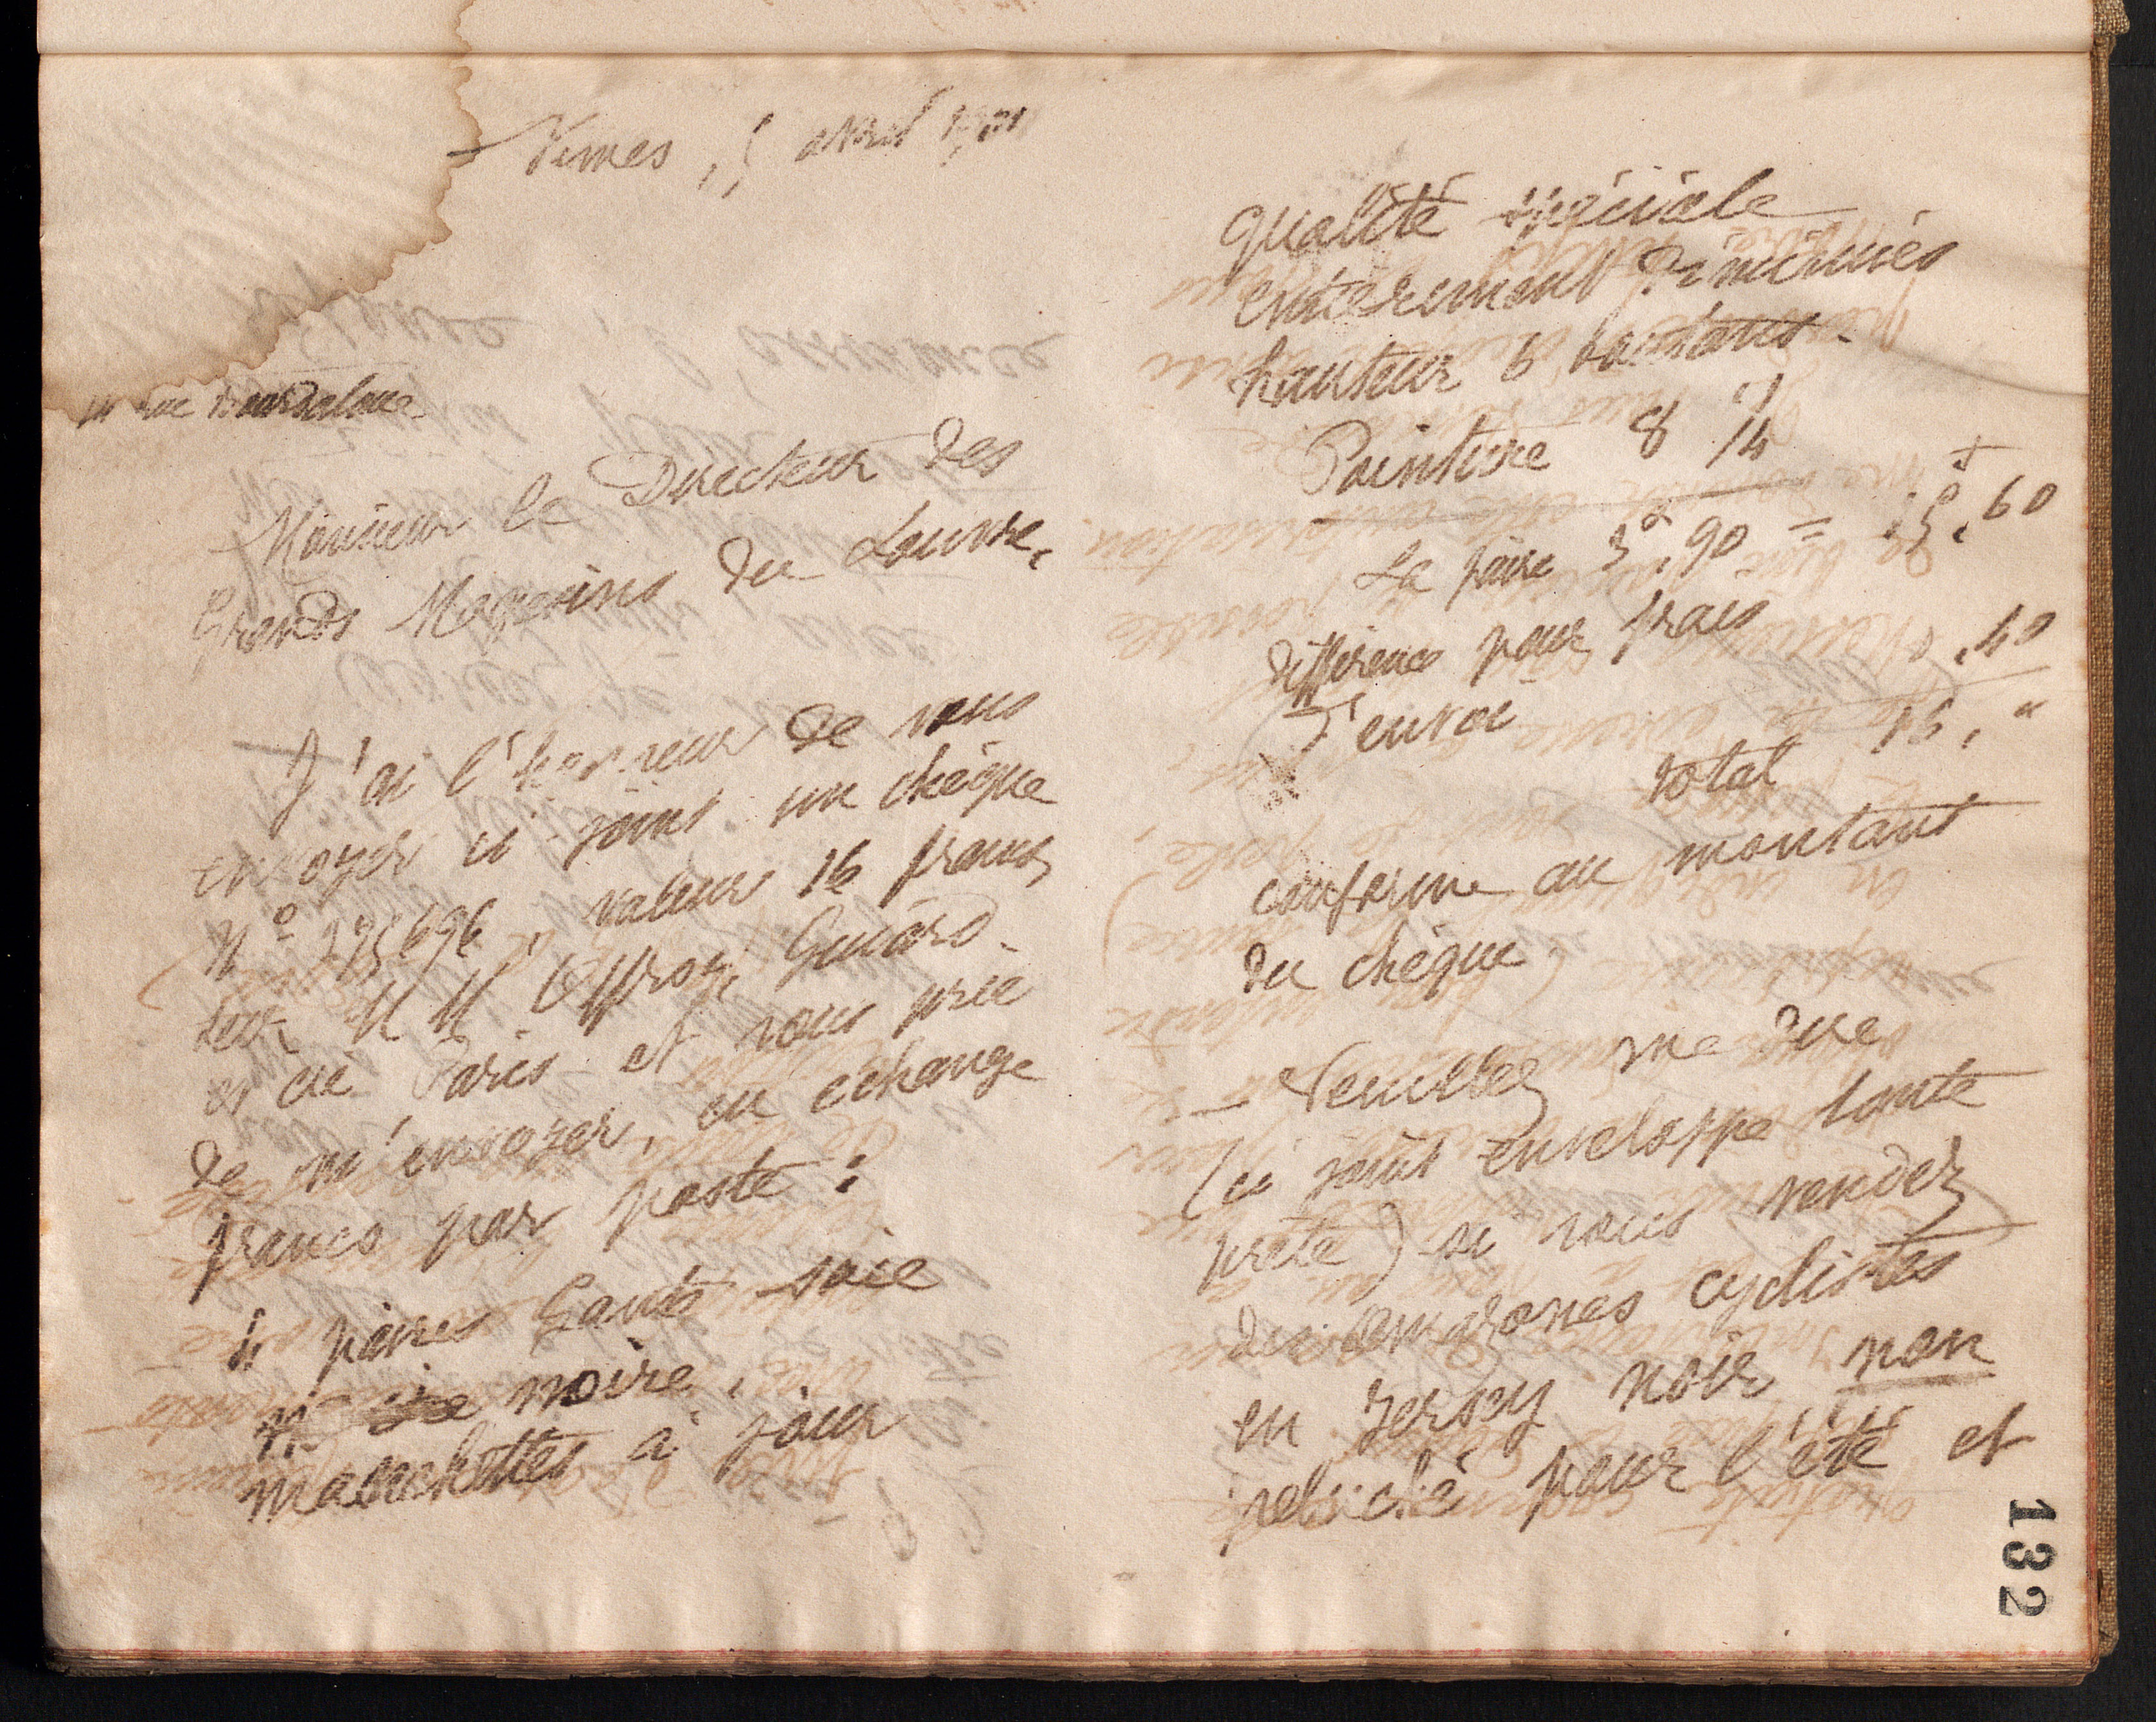 Nîmes, 5 avril
rue Bourdaloue
Monsieur le Directeur des
Grands Magasins du Louvre,
J'ai l'honneur de vous
envoyer ci joint un chèque
N° 275696, valeur 16 francs
sur M M Offroy, Guiard
et cie Paris et vous prie
de m'envoyer, en échange
franco par poste :
4 paires Gants soie
noire,
manchettes à jour
qualité spéciale
entièrement diminués
hauteur 6 boutons.
Pointure 8 1/4
La paire 3f,90 = 15f,60
différence pour frais
d'envoi 0,40
total 16, "
conforme au montant
du chèque
- Veuillez me dire
(ci joint enveloppe toute
prête) si vous vendez
des amazones cyclistes
en jersey noir non
peluché pour l'été et
132